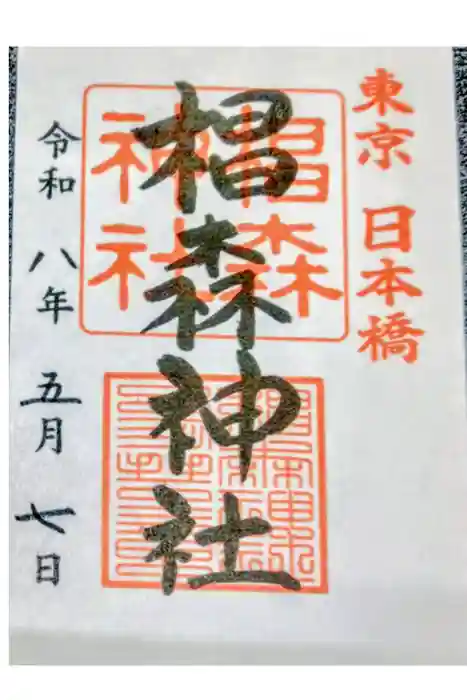 東京 日本橋
椙森神社
椙森
神社
令和八年五月七日